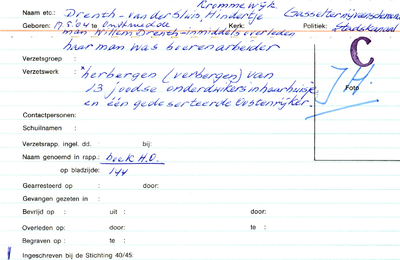 Krommewijk
Naam etc.: Drenth - van der Sluis, Hindertje Gasselternijveenschemond
Geboren: 17.8.'04 te Onstwedde Kerk: Politiek: Stadskanaal
man Willem Drenth - inmiddels overleden
haar man was boerenarbeider
Verzetsgroep :
C
Verzetswerk : herbergen (verbergen) van
13 joodse onderduikers in haar huisje
en één gedeserteerde Oostenrijker.
Foto
Contactpersonen:
Schuilnaam :
Verzetsrapp. ingel. dd. : bij:
Naam genoemd in rapp.: boek H.O.
op bladzijde: 144
Gearresteerd op : door:
Gevangen gezeten in :
Bevrijd op : uit : door:
Overleden op: door: te :
Begraven op : te :
Ingeschreven bij de Stichting 40/45: